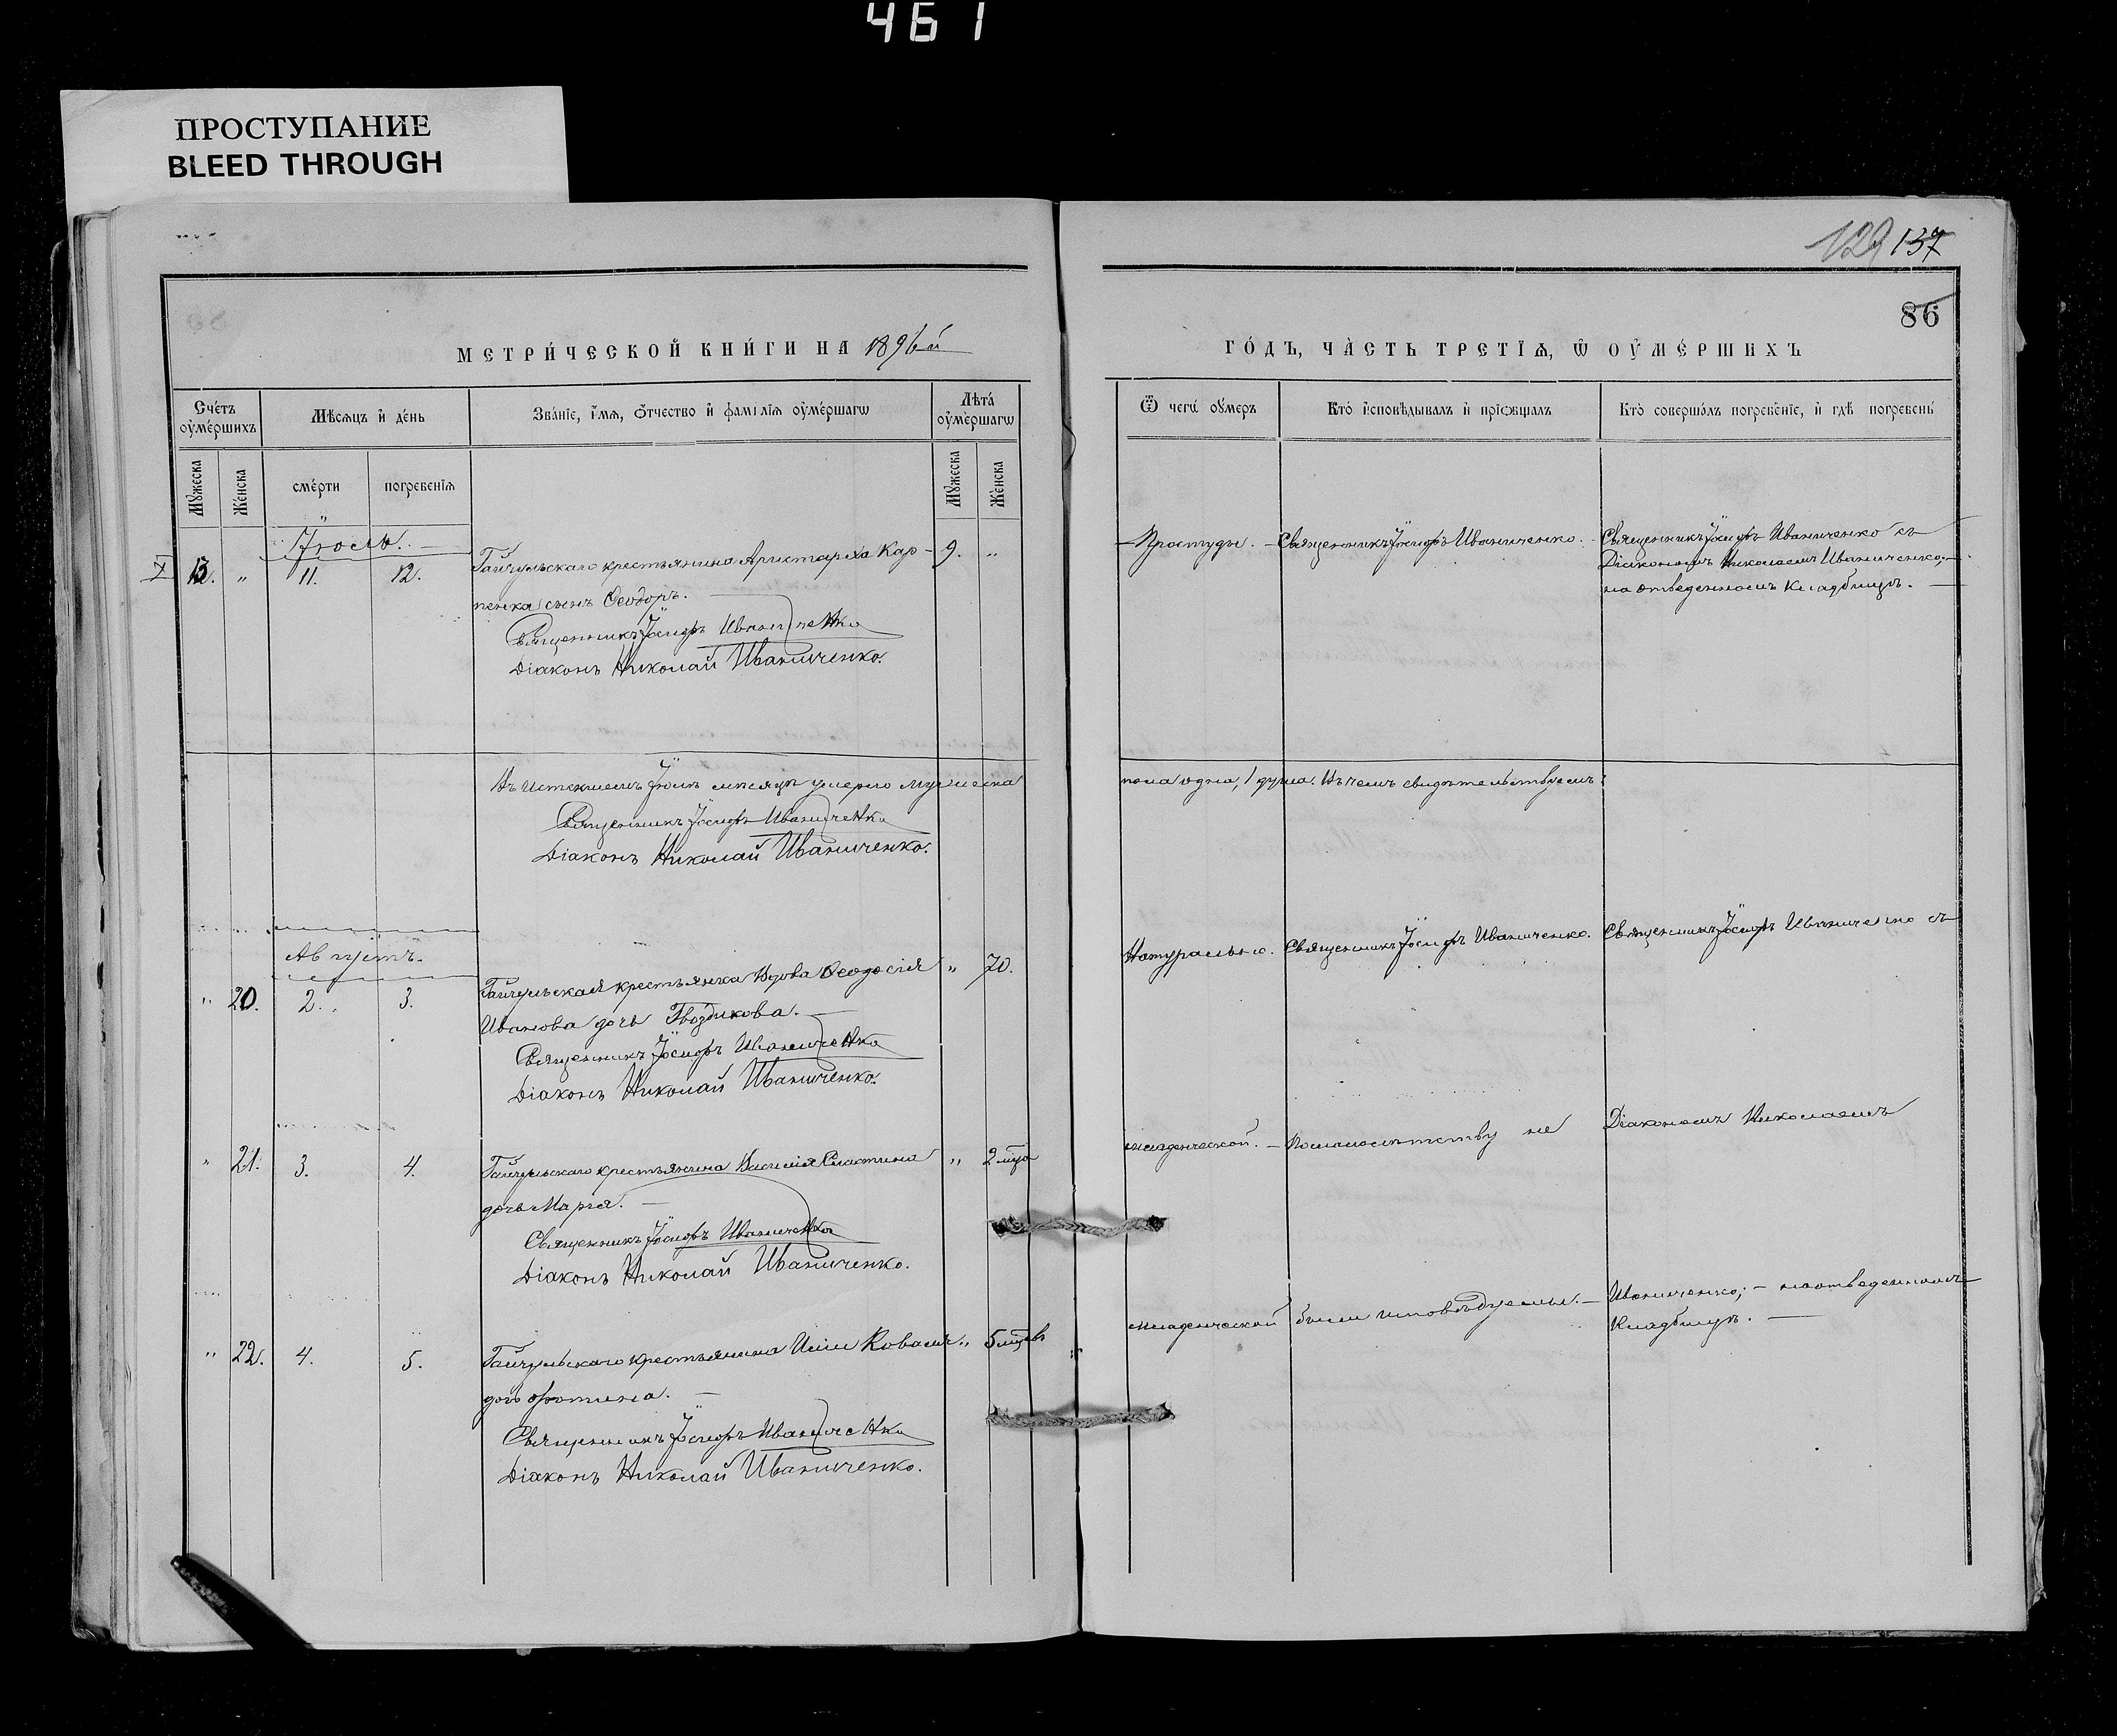 461
ПРОСТУПАНИЕ
BLEED THROUGH
129 137
86
МЕТРИ́ЧЕСКОЙ КНИ́ГИ НА 1896й
ГО́ДЪ, ЧА̀СТЬ ТРЕТІѦ, Ѿ ОУ҆МЕ́РШИХЪ
Сче́тъ оу҆ме́ршихъ
Мѣ́сѧцъ и҆ де́нь
Зва́нїе, и҆́мѧ, ѻ҆́тчество и҆ фамі́лїѧ оу҆ме́ршагѡ
Лѣта́ оу҆ме́ршагѡ
Ѿ чегѡ̀ оу҆́меръ
Кто̀ и҆сповѣ́дывалъ и҆ прїѡбща́лъ
Кто̀ соверша́лъ погребе́нїе, и҆ гдѣ̀ погребены̀
Мꙋ́жеска
Же́нска
сме́рти
погребе́нїѧ
Мꙋ́жеска
Же́нска
Іюль.
13. " 11. 12. Гайчульскаго крестьянина Аристарха Кар- 9. "
пенка сынъ Ѳеодоръ.
Священникъ Іосифъ Иваниченко
Діаконъ Николай Иваниченко.
Простуды. - Священникъ Іосифъ Иваниченко. Священникъ Іосифъ Иваниченко съ
Діакономъ Николаемъ Иваниченко;
на отведенномъ кладбищѣ.
Въ истекшемъ Іюлѣ мѣсяцѣ умерло мужеска пола одна, 1 душа. Въ чемъ свидѣтельствуемъ:
Священникъ Іосифъ Иваниченко
Діаконъ Николай Иваниченко.
Августъ.
" 20. 2. 3. Гайчульская крестьянка вдова Ѳеодосія " 70.
Иванова дочь Гвоздикова.
Священникъ Іосифъ Иваниченко
Діаконъ Николай Иваниченко.
Натурально. Священникъ Іосифъ Иваниченко. Священникъ Іосифъ Иваниченко съ
" 21. 3. 4. Гайчульскаго крестьянина Василія Сластина " 2 мца
дочь Марія.
Священникъ Іосифъ Иваниченко
Діаконъ Николай Иваниченко.
младенческой. - Помалолѣтству не Діакономъ Николаемъ
" 22. 4. 5. Гайчульскаго крестьянина Иліи Коваля " 5 мцевъ
дочь Фотина.
Священникъ Іосифъ Иваниченко
Діаконъ Николай Иваниченко.
младенческой были исповѣдуемы. - Иваниченко; - на отведенномъ
кладбищѣ.